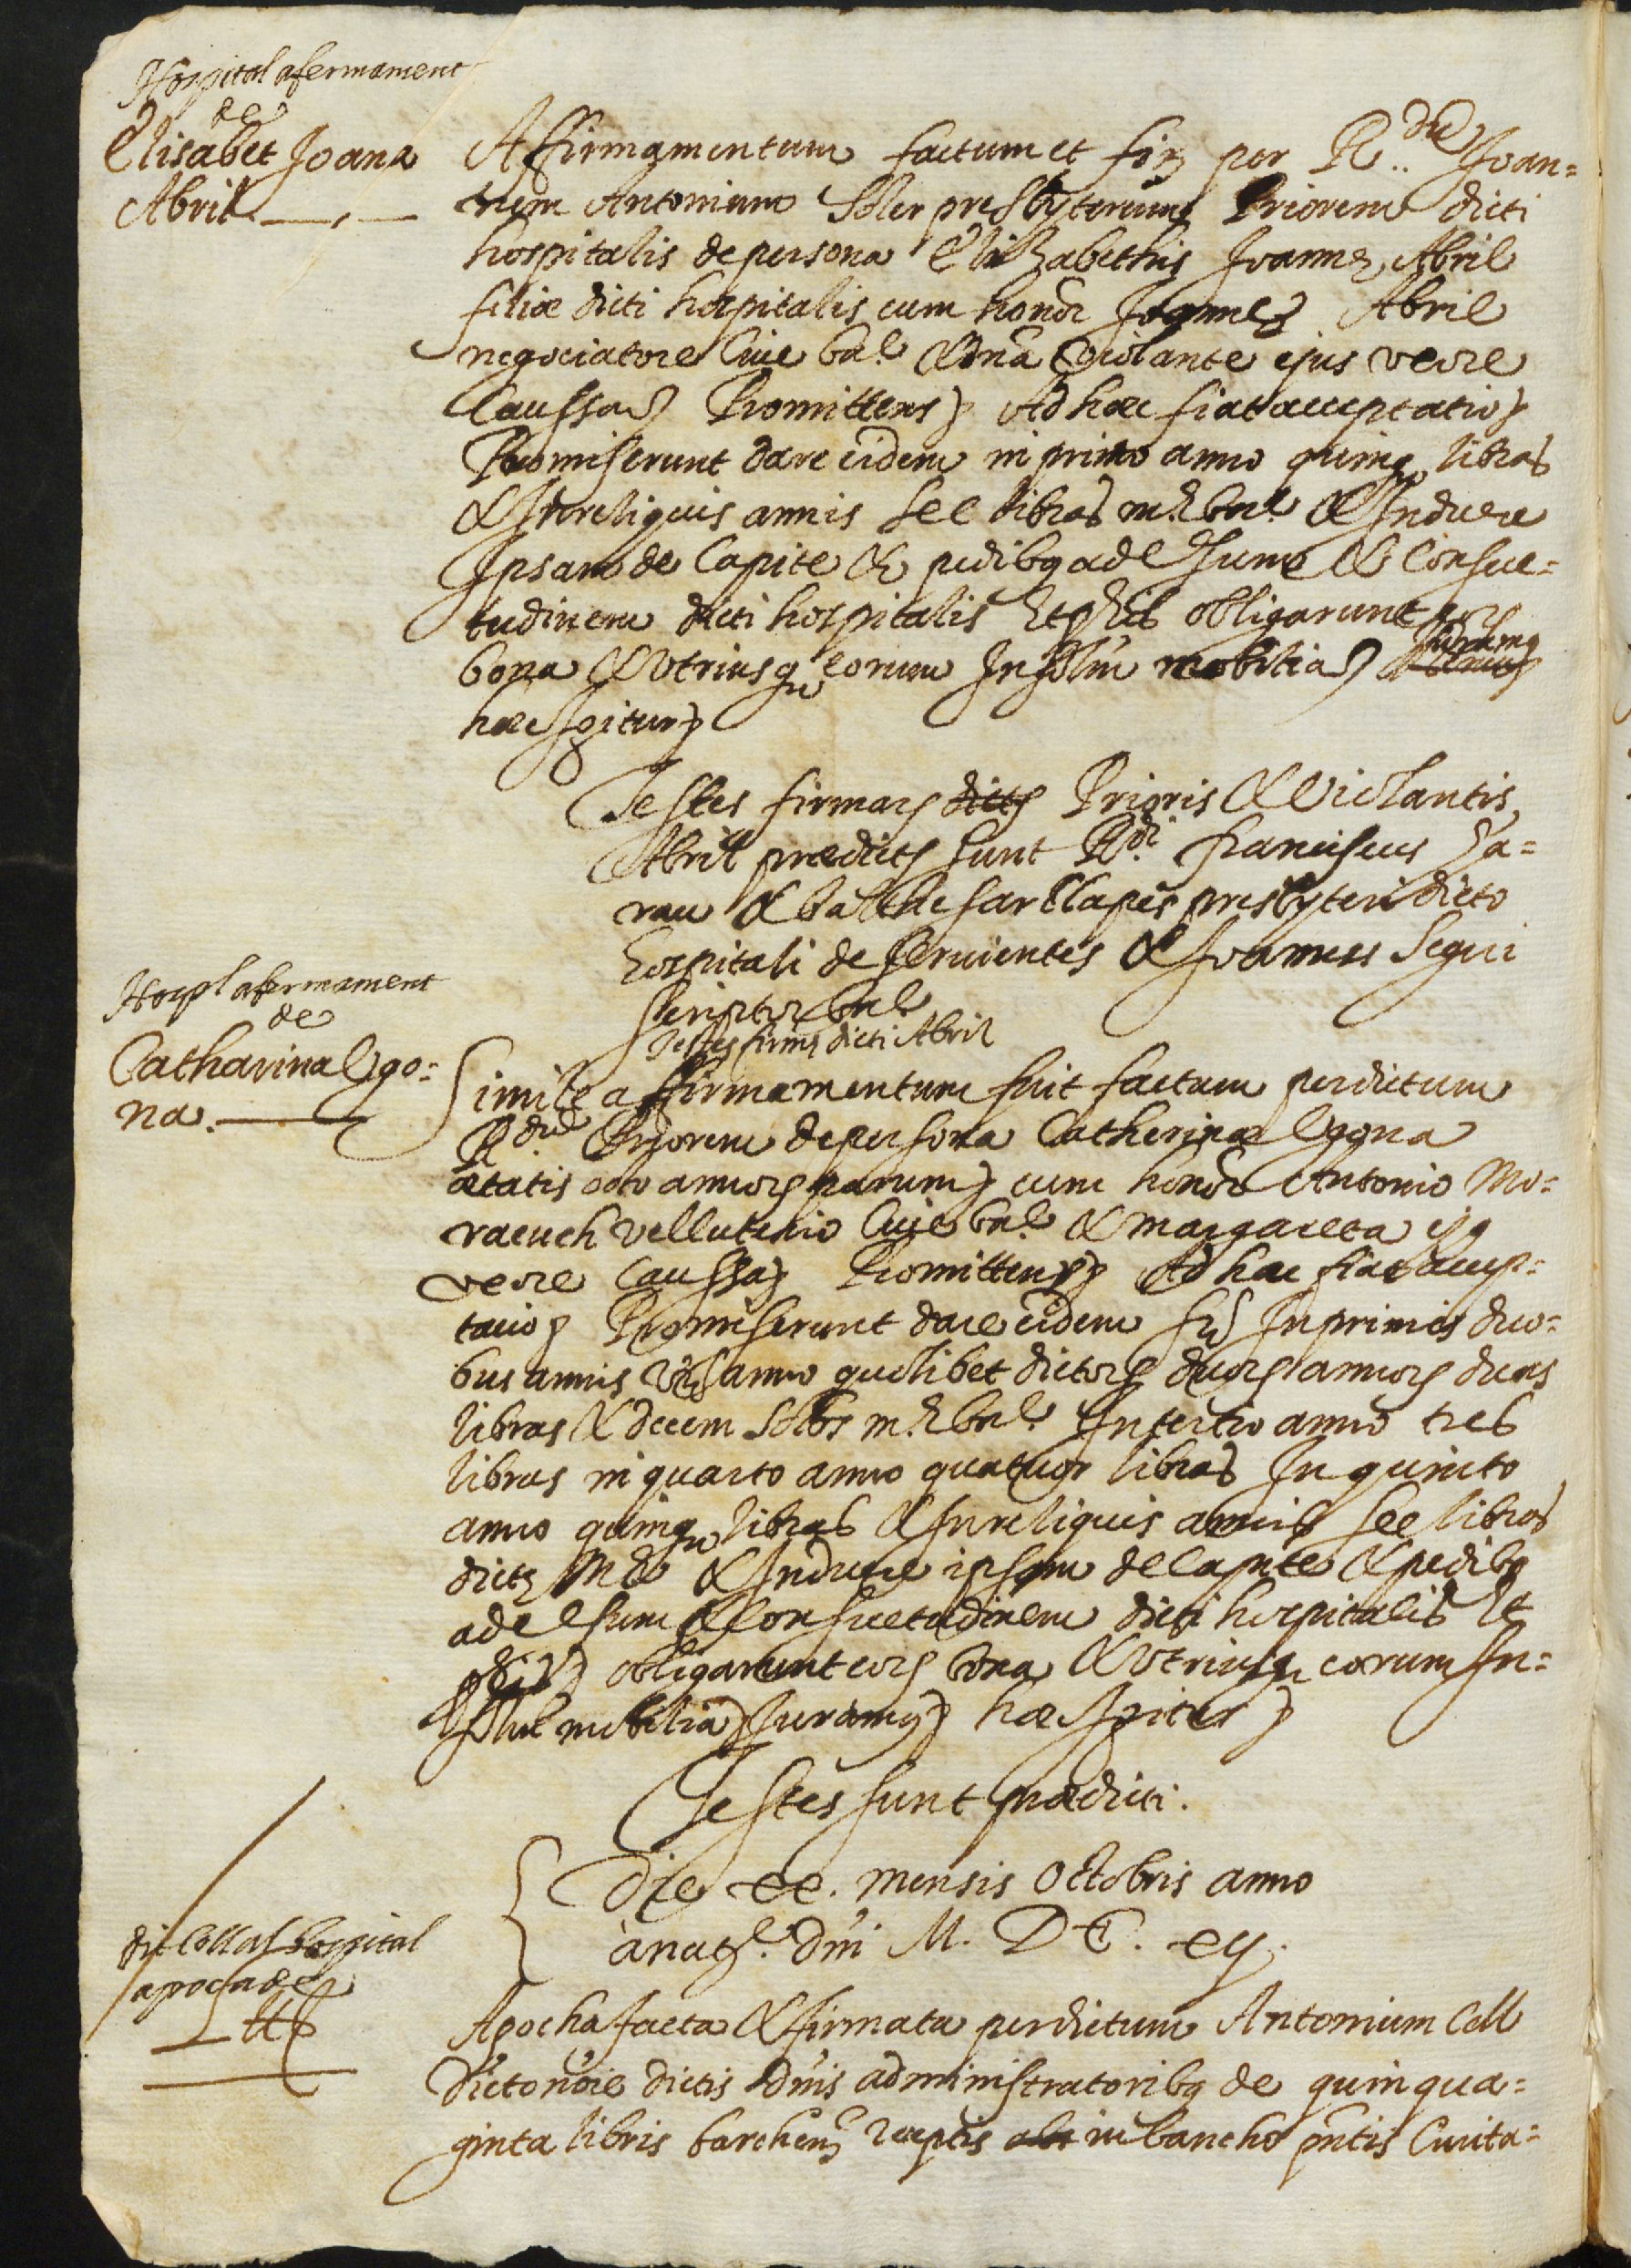 Hospital afermament
de
Elisabet Joana
Abril
Affirmamentum factum et fir. per R.dum Joan-
nem Antonium Soler presbyterum Priorem dicti
hospitalis de persona Elizabethis Joannę Abril
filiæ dicti hospitalis cum honor Joanne Abril
negociatore Cive bar. & dna Violante ejus uxore
Caussa Promittens Ad hæc fiat acceptatio
Promiserunt dare eidem in primo anno quinq libras
& In reliquis annis sex libras m. bar. & Induere
Ipsam de Capite & pedibq ad Usum & Consue-
tudinem dicti hospitalis Et obligarunt eorz
bona & Utriusq eorum In solm mobilia Juramq
hæc Igitur
Testes firmarz Prioris & Violantis
Abril prædictz sunt Rdi. Franciscus
rau & Balthesar Clapes presbyteri dicto
hospitali deservientes & Joannes Segui
scriptor bar.
Testes firmę dicti Abril
Hospl afermament
de
Catharina Ugo-
na.
Simile affirmamentum fuit factum per dictum
R.dum Priorem de persona Catherinæ Ugona
ætatis octo annorz parum cum honor Antonio Mo-
racuch velluterio Cive bar. & Margareta ejq
uxore Caussa Promittens Ad hæc fiat accep-
tatio Promiserunt dare eidem In primis duo-
bus annis anno quolibet dictorz duorz annorz duas
libras & decem solos m. bar. In tertio anno tres
libras in quarto anno quatuor libras In quinto
anno quinq libras & In reliquis annis sex libras
dictę mtę & Induere ipsam de Capite & pedibq
ad Usum & Consuetudinem dicti hospitalis Et
obligarunt eorz bona & Utriusq eorum In-
solm mobilia Juramq hæc Igitur
Testes sunt prædicti.
Die xx. mensis Octobris anno
a nat. Dni M. DC. xij.
den Coll al hospital
apocha de
L ℔
Apocha facta & firmata per dictum Antonium Coll
Dicto noīe dictis Dnis administratoribq de quinqua-
ginta libris barchenz receptis in bancho pntis Civita-